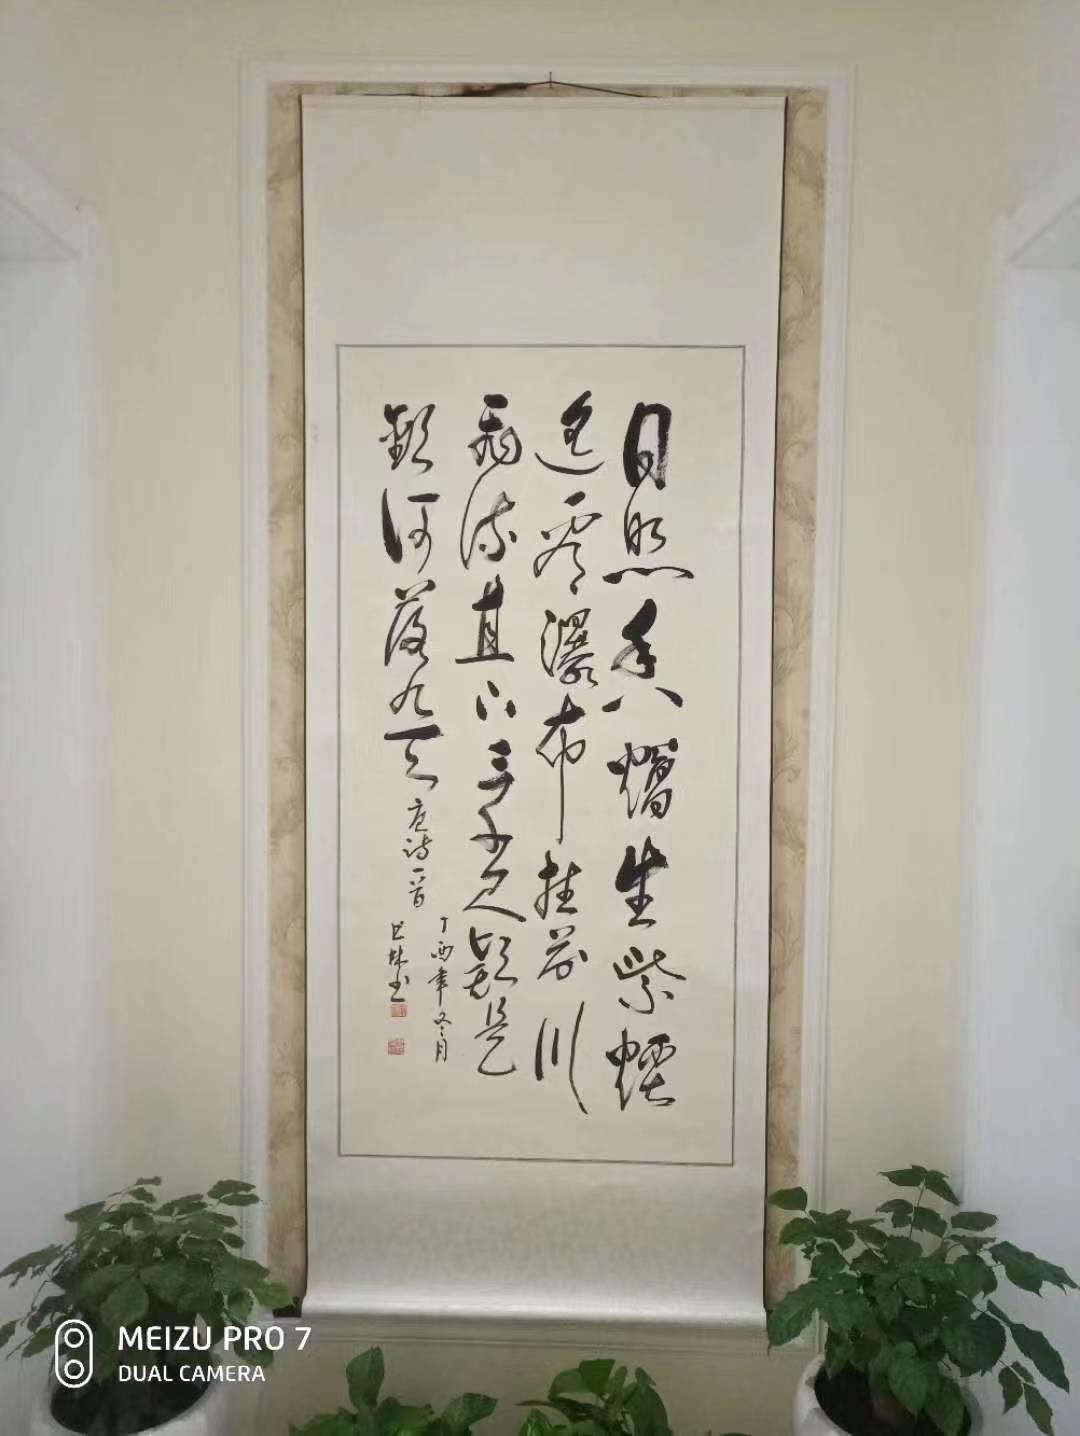 日照香爐生紫煙
遥看瀑布挂前川
飛流直下三千尺疑是
銀河落九天 唐诗一首
丁酉年冬月
林书
MEIZU PRO 7
DUAL CAMERA